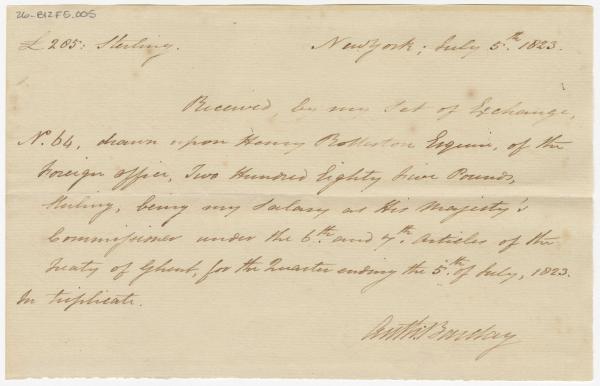 26-B12F5.005
£ 285: Sterling. New York; July 5th. 1823.
Received, by my Set of Exchange,
No. 64, drawn upon Henry Rolleston Esquire, of the
Foreign office, Two Hundred Eighty five Pounds,
Sterling, being my Salary as His Majesty's
Commissioner under the 6th. and 7th. Articles of the
Treaty of Ghent, for the Quarter ending the 5th. of July, 1823.
In triplicate.
Anth: Barclay